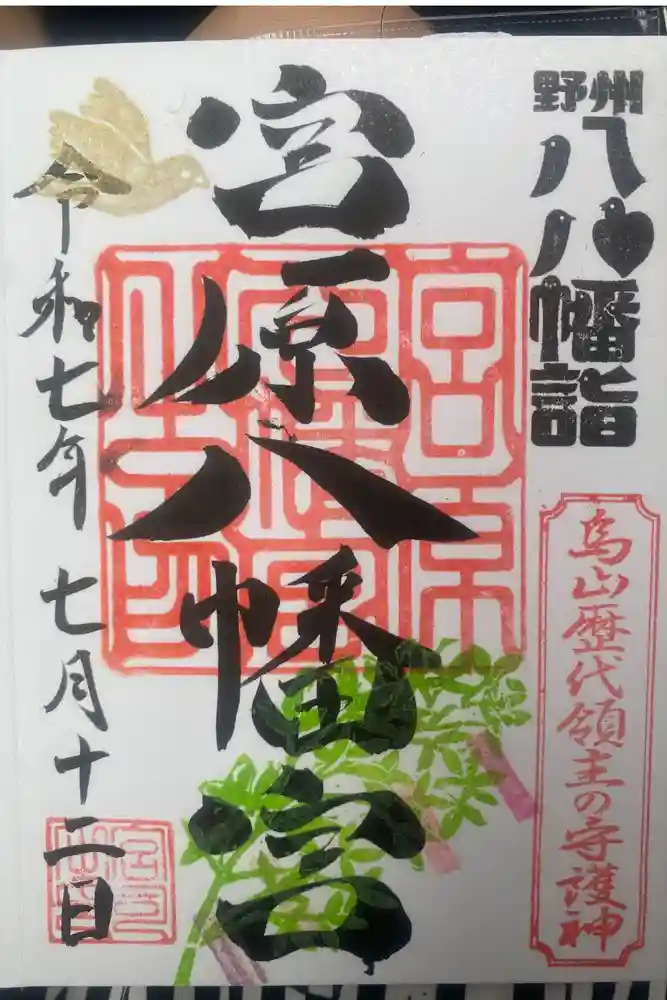 野州
八八幡詣
烏山歴代領主の守護神
宮原八幡宮
令和七年七月十二日